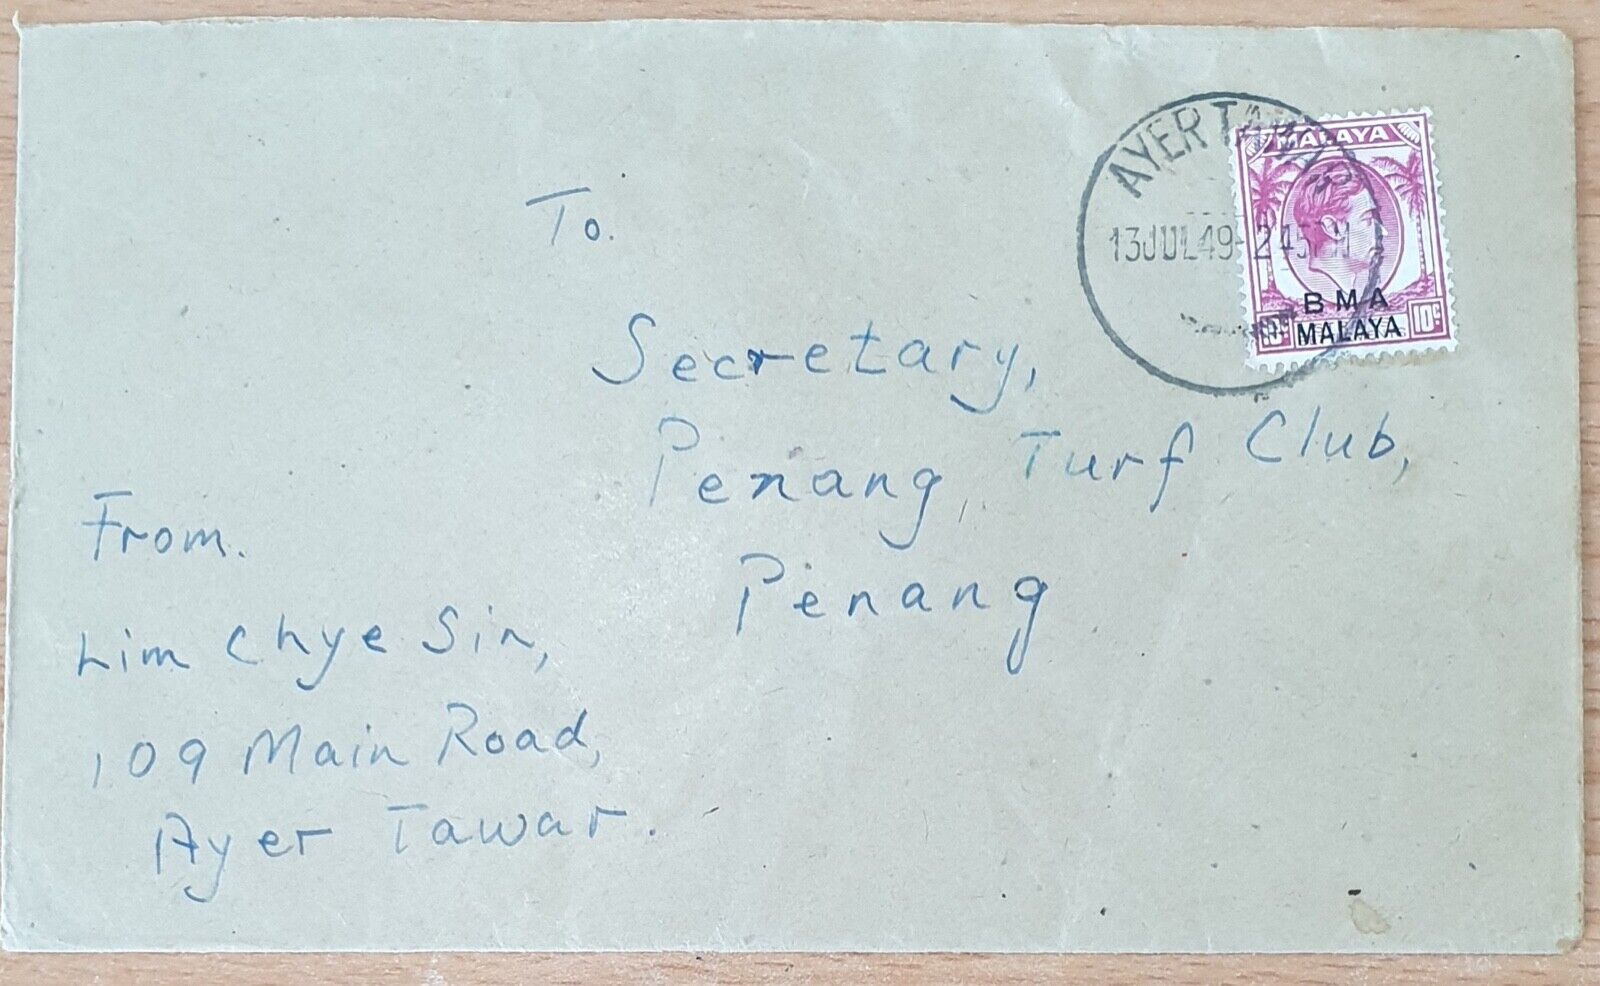 AYER TAWAR
13JUL49-245PM
MALAYA
BMA
MALAYA
10c 10c
To.
Secretary,
Penang Turf Club,
Penang
From.
Lim Chye Sin,
109 Main Road,
Ayer Tawar.